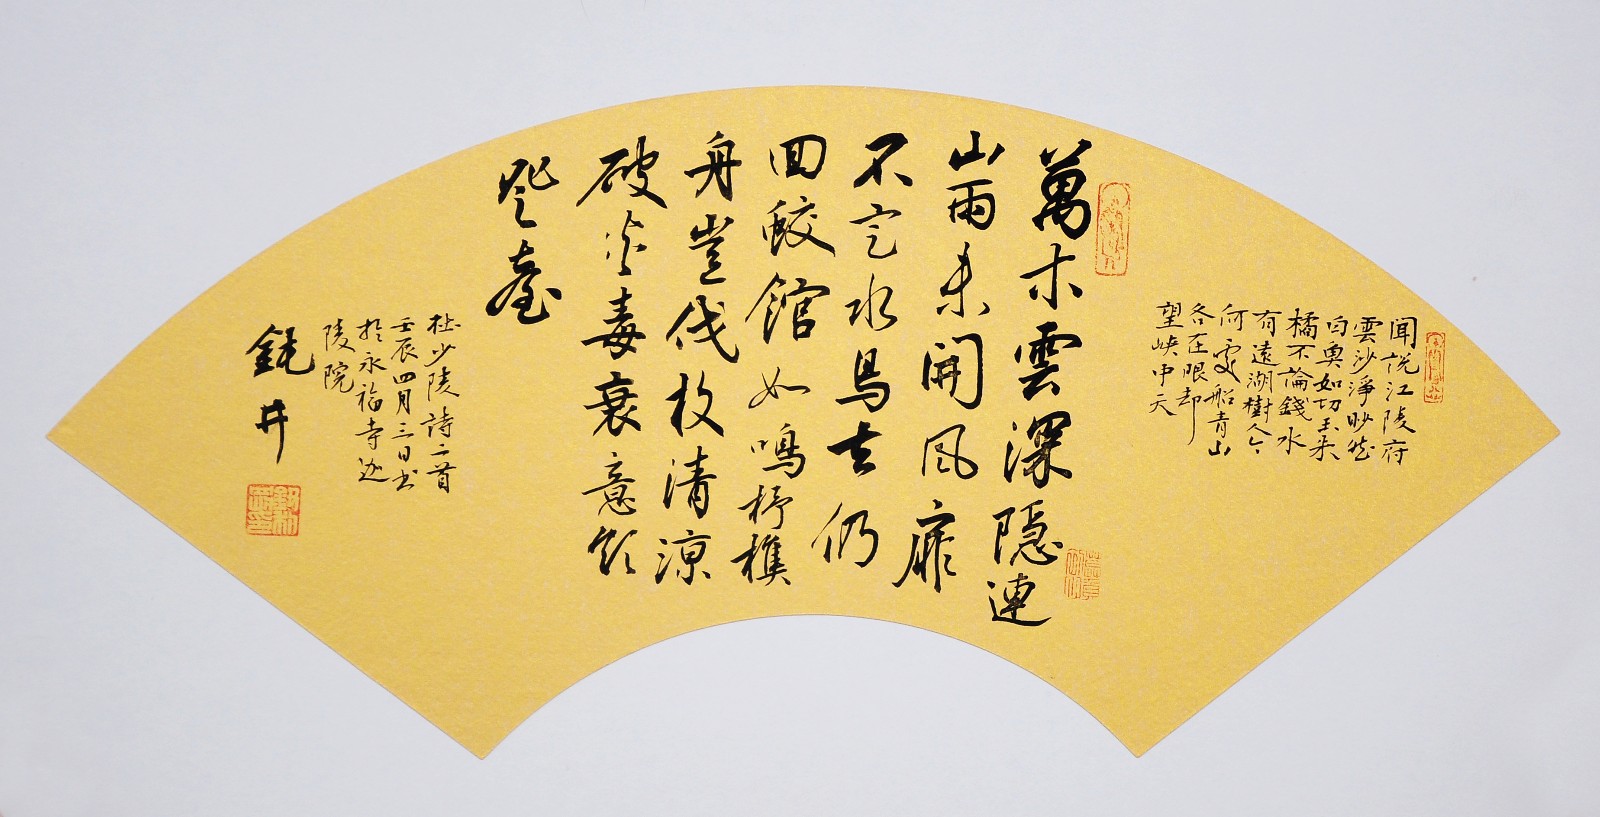 聞說江陵府
雲沙淨眇然
白魚如切玉朱
橘不論錢水
有遠湖樹人今
何處船青山
各在眼却
望峽中天
萬木雲深隱連
山雨未開風扉
不定水鳥去仍
回鮫館如鳴杼樵
舟豈伐枚清涼
破炎毒衰意欲
登臺
杜少陵詩二首
壬辰四月三日書
於永福寺迦
陵院
鈍井